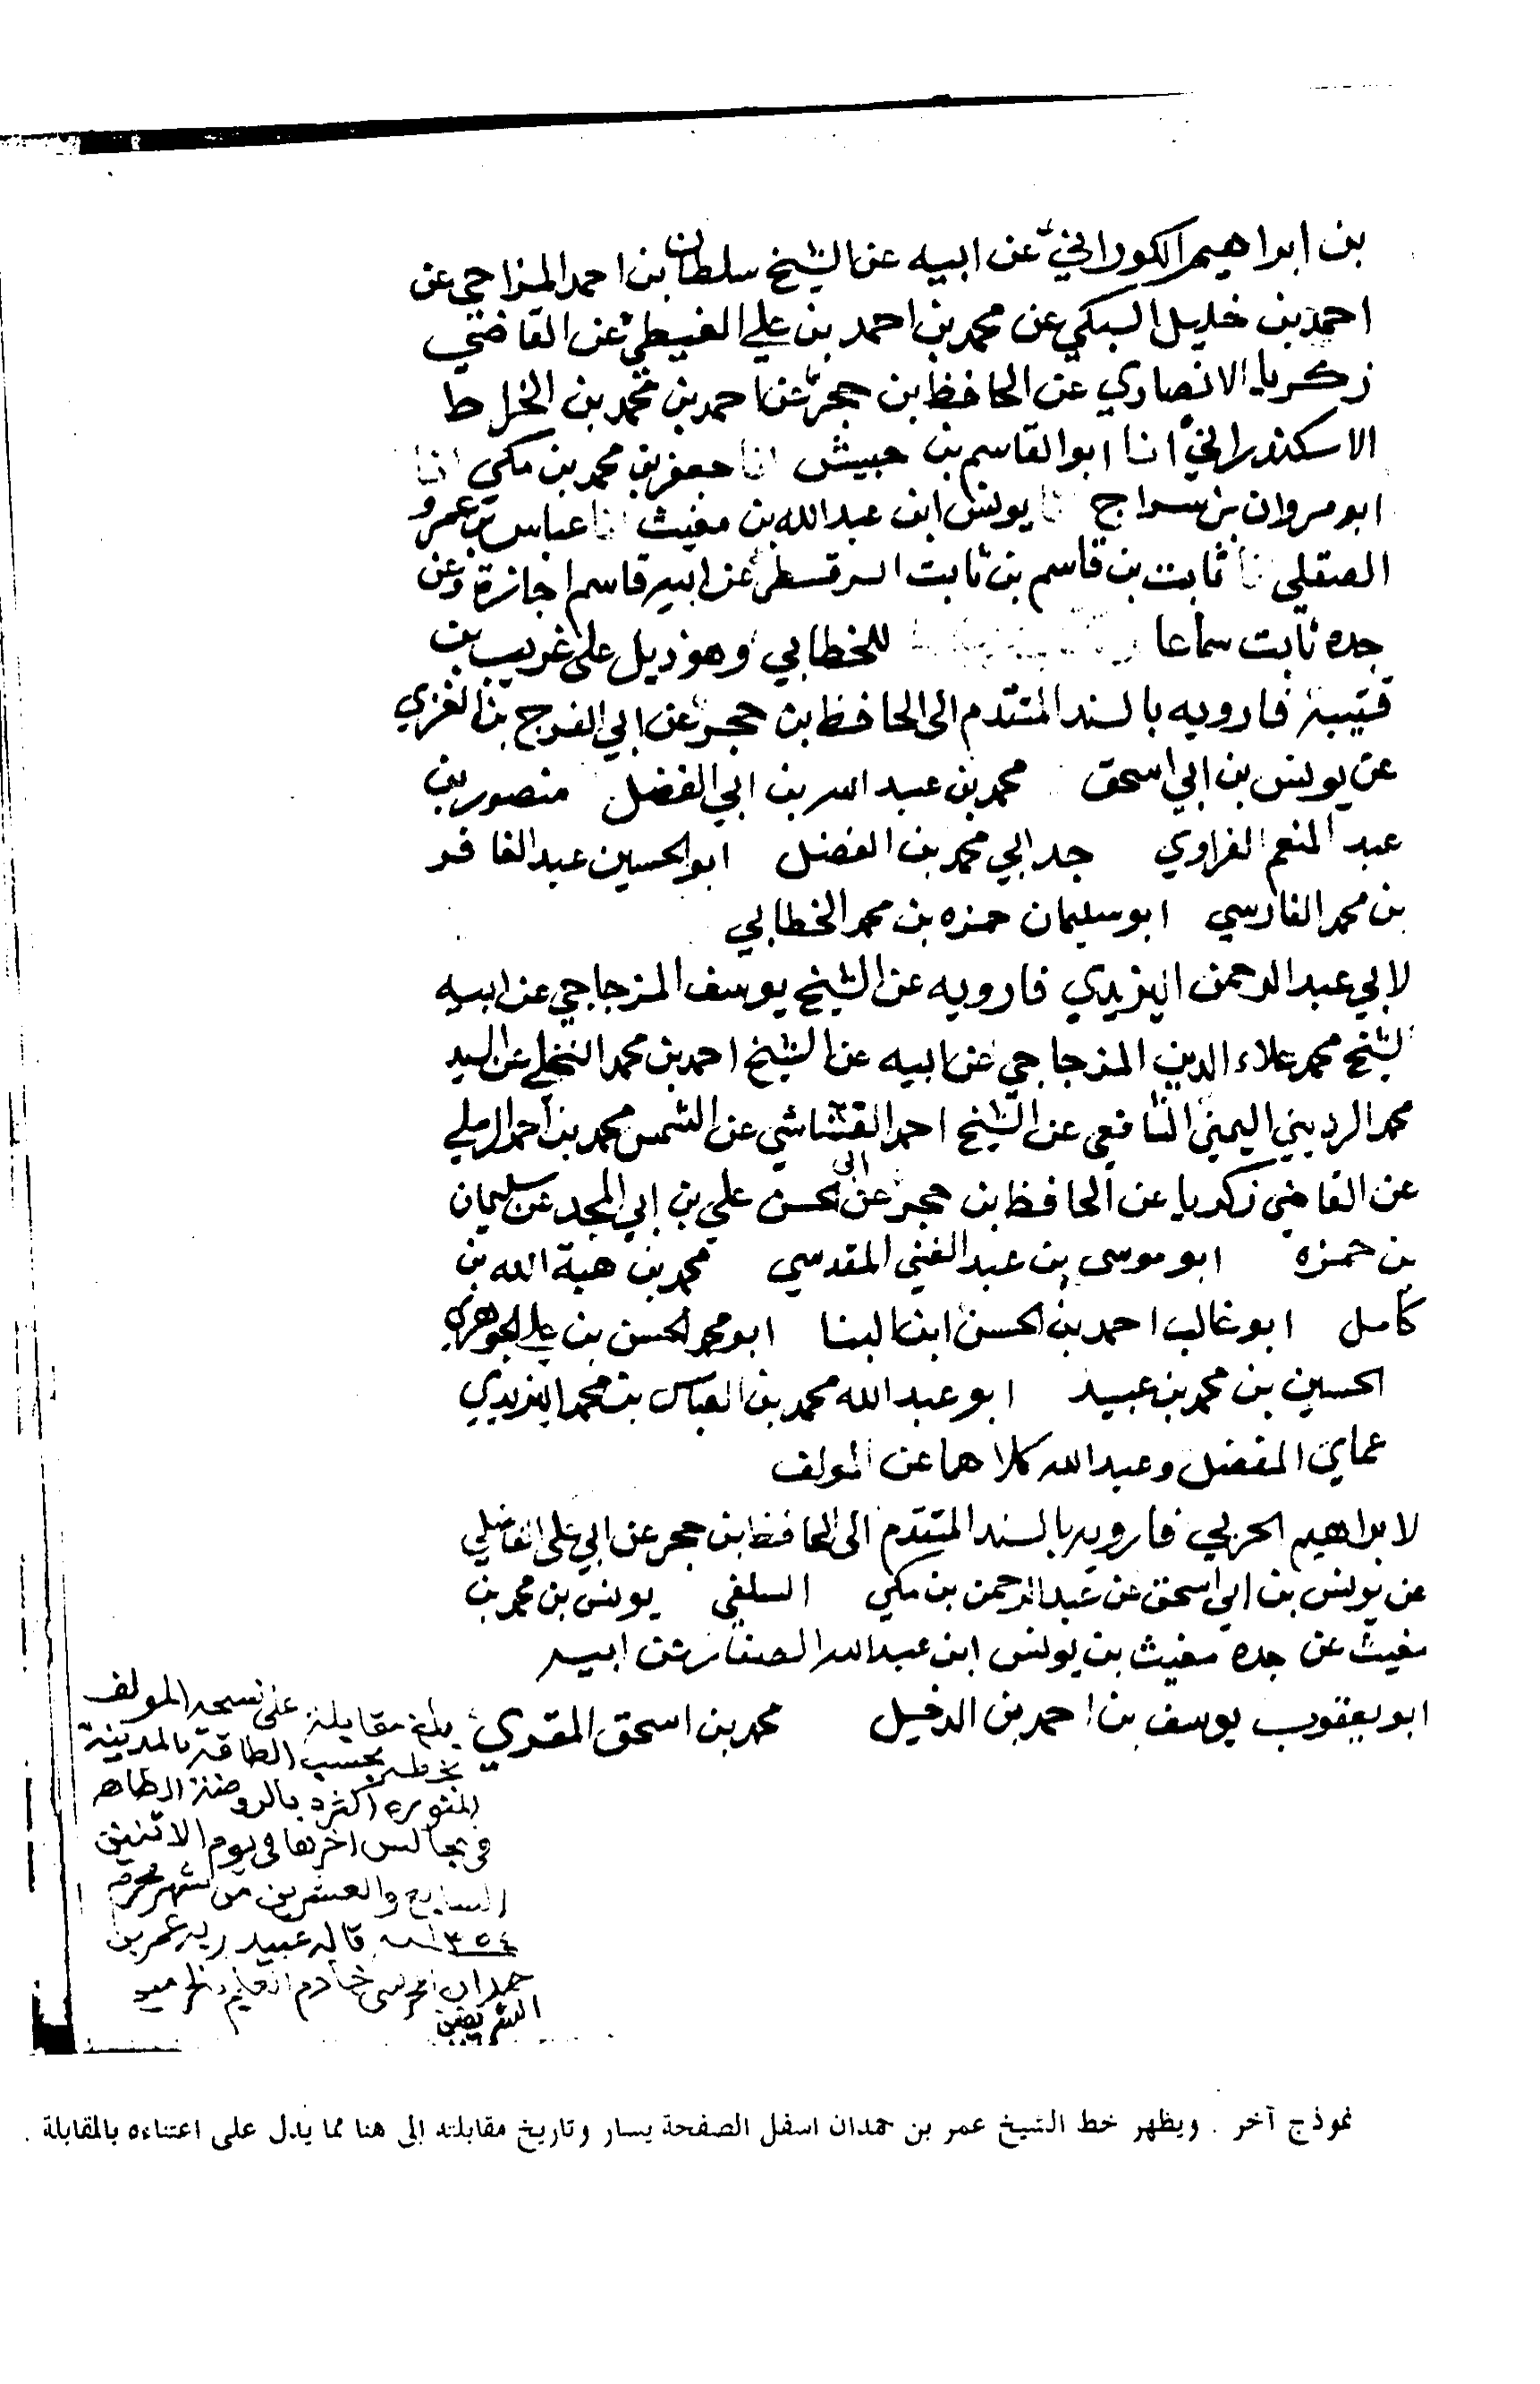 بن ابراهيم الكوراني عن ابيه عن الشيخ سلطان بن احمد المزاحي عن
احمد بن خليل السبكي عن محمد بن احمد بن علي الغيطي عن القاضي
زكريا الانصاري عن الحافظ بن حجر عن احمد بن محمد بن الخراط
الاسكندراني انا ابو القاسم بن حبيش انا جعفر بن محمد بن مكي انا
ابو مروان بن سراج نا يونس ابن عبد الله بن مغيث انا عباس بن عمرو
الصقلي نا ثابت بن قاسم بن ثابت السرقسطي عن ابيه قاسم اجازة وعن
جده ثابت سماعا للخطابي وهو ذيل على غريب بن
قتيبة فارويه بالسند المتقدم الى الحافظ بن حجر عن ابي الفرج بن الغزي
عن يونس بن ابي اسحق محمد بن عبد الله بن ابي الفضل منصور بن
عبد المنعم الفراوي جد ابي محمد بن الفضل ابو الحسين عبد الغافر
بن محمد الفارسي ابو سليمان حمزه بن محمد الخطابي
لابي عبد الرحمن اليزيدي فارويه عن الشيخ يوسف المزجاجي عن ابيه
الشيخ محمد علاء الدين المزجاجي عن ابيه عن الشيخ احمد بن محمد النخلي عن السيد
محمد الرديني اليمني الشافعي عن الشيخ احمد القشاشي عن الشمس محمد بن احمد الرملي
عن القاضي زكريا عن الحافظ بن حجر عن ابي الحسن علي بن ابي المجد عن سليمان
بن حمزه ابو موسى بن عبد الغني المقدسي محمد بن هبة الله بن
كامل ابو غالب احمد بن الحسن ابن البنا ابو محمد الحسن بن علي الجوهري
الحسين بن محمد بن عبيد ابو عبد الله محمد بن العباس بن محمد اليزيدي
عماي المفضل وعبد الله كلاهما عن المولف
لابراهيم الحربي فارويه بالسند المتقدم الى الحافظ بن حجر عن ابي علي الفاضلي
عن يونس بن ابي اسحق عن عبد الرحمن بن مكي السلفي يونس بن محمد بن
مغيث عن جده مغيث بن يونس ابن عبد الله الصفار عن ابيه
ابو يعقوب يوسف بن احمد بن الدخيل محمد بن اسحق المقري
بلغ مقابلة على نسخة المولف
بخطه بحسب الطاقة بالمدينة
المنوره اكثره بالروضة الطاهره
في مجالس اخرها في يوم الاثنين
السابع والعشرين من شهر محرم
١٣٥٤ قاله عبيد ربه عمر بن
حمدان المحرسي خادم العلم بالحرمين
الشريفين
نموذج آخر . ويظهر خط الشيخ عمر بن حمدان اسفل الصفحة يسار وتاريخ مقابلته إلى هنا مما يدل على اعتناءه بالمقابلة .